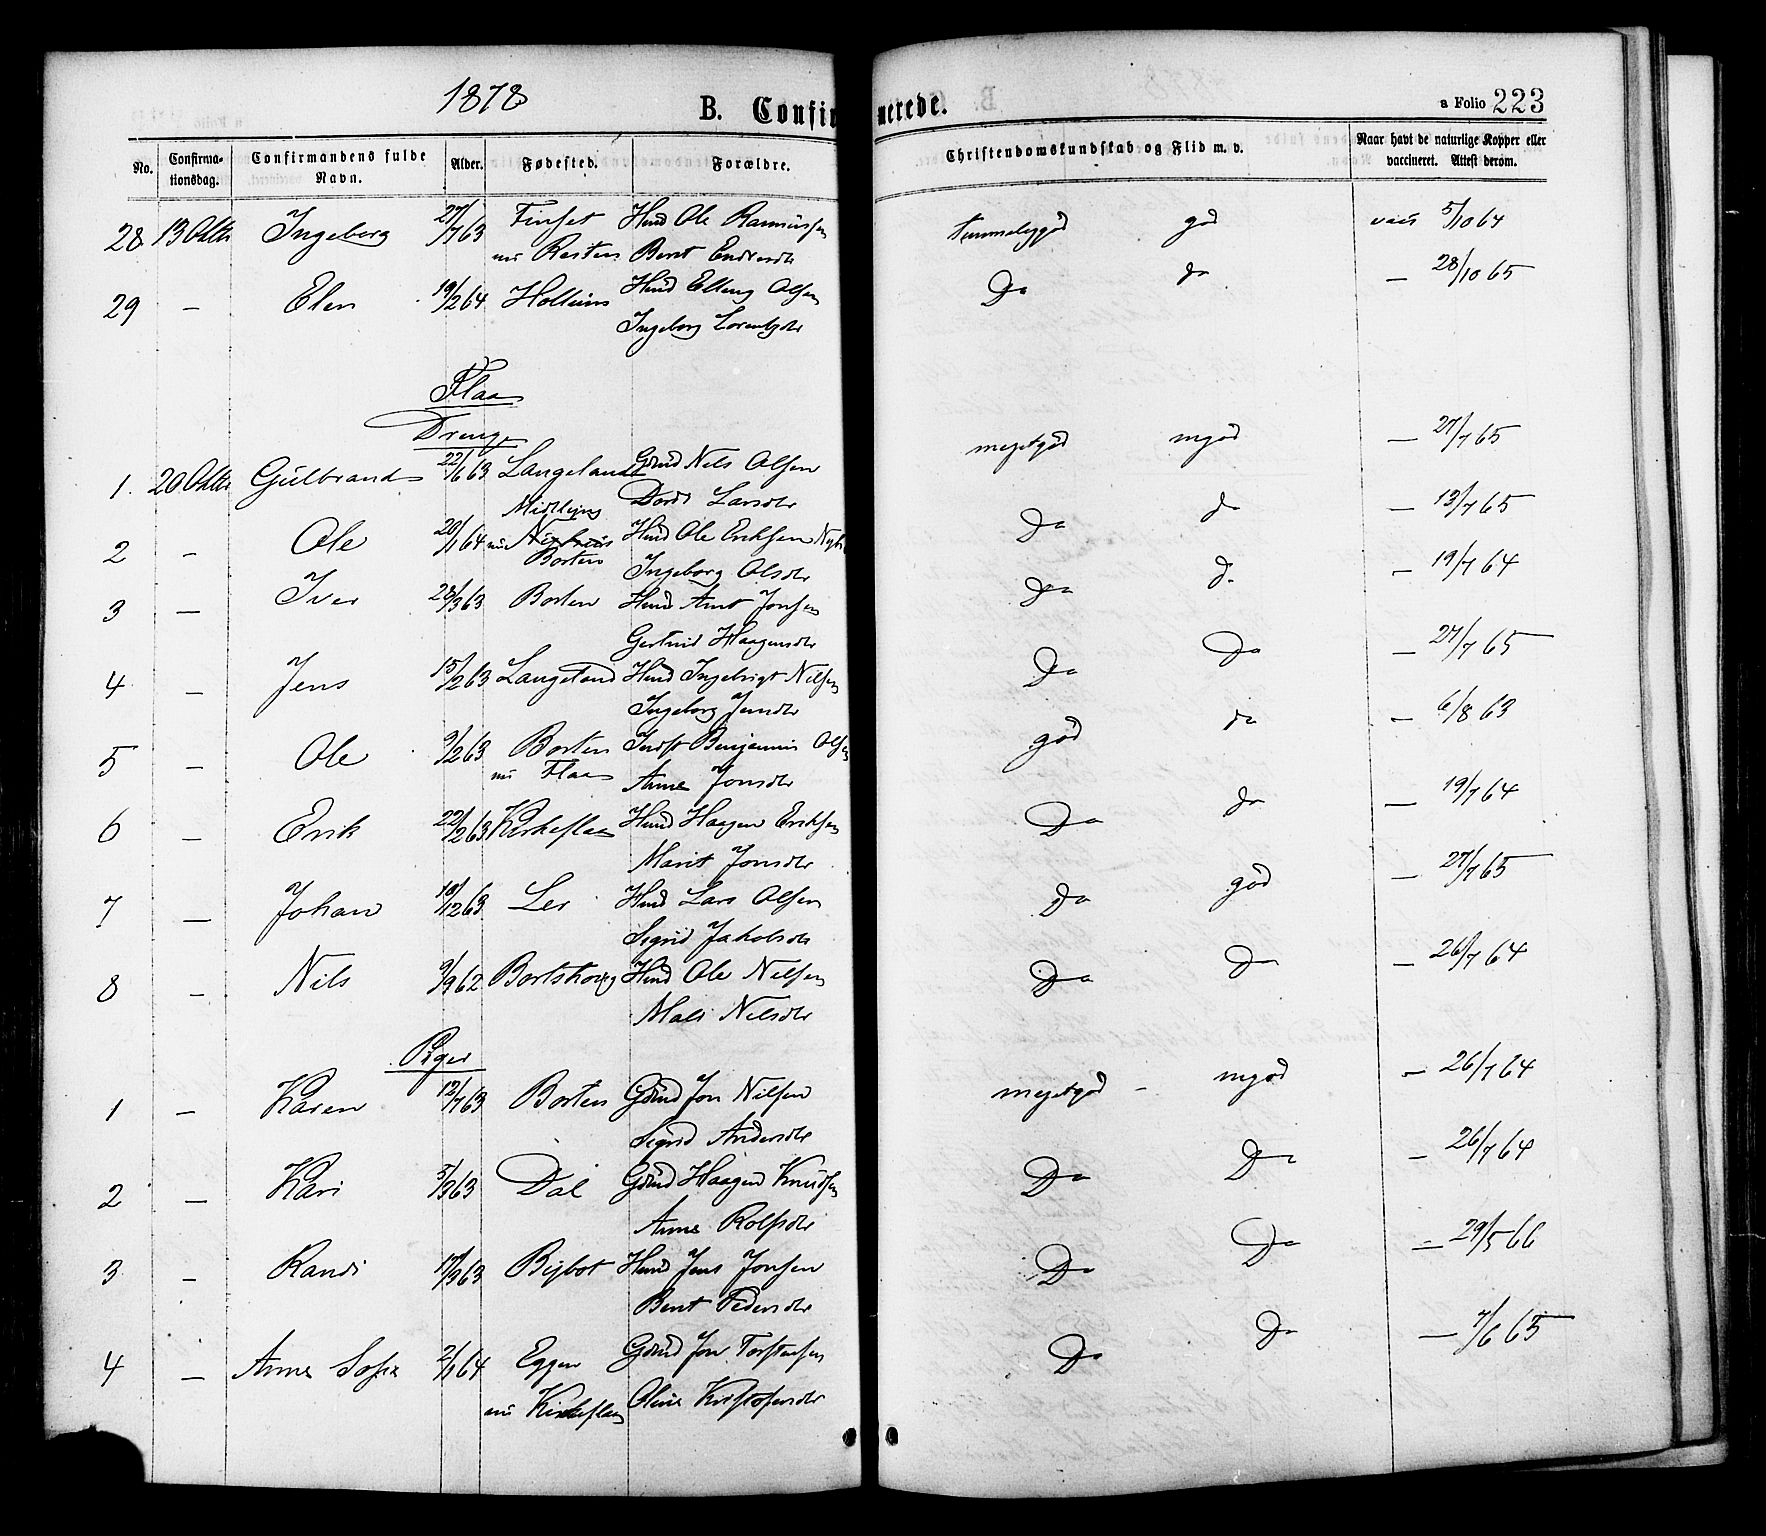 1878
B. Confirmerede.
a Folio 223
No. Confirmationsdag. Confirmandens fulde Navn. Alder. Fødested. Forældre. Christendomskundskab og Flid m. v. Naar havt de naturlige Kopper eller vaccineret. Attest derom.
28 13 Oktbr Ingeborg 27/7 63 Finset Hmd Ole Rasmussen temmeliggod god vacc 5/10 64
nu Rosten Berit Endresdtr
29 — Elen 19/2 64 Holteim Hmd Elling Olsen Do do — 28/10 65
Ingeborg Lorentzdtr
Flaa
Drenge
1. 20 Oktbr Gulbrand 22/6 63 Langeland Gdmd Nils Olsen megetgod mgod — 27/7 65
Dordi Larsdtr
2 — Ole 20/1 64 Midtlyng Hmd Ole Eriksen Do do — 13/7 65
nu Borten Ingeborg Olsdtr
3 — Iver 28/3 63 Borten Hmd Arnt Jonsen Do do — 19/7 64
Gertrud Haagensdtr
4 — Jens 15/2 63 Langeland Hmd Ingebrigt Nilsen Do Do — 27/7 65
Ingeborg Jensdtr
5 — Ole 9/2 63 Borten Indst Benjamin Olsen god do — 6/8 63
nu Flaa Anne Jonsdtr
6 — Erik 22/2 63 Kirkeflaa Hmd Haagen Eriksen Do do — 19/7 64
Marit Jonsdtr
7 — Johan 10/12 63 Ler Hmd Lars Olsen Do god — 27/7 65
Sigrid Jakobsdtr
8 — Nils 9/9 62 Bortskoug Hmd Ole Nilsen Do Do — 26/7 64
Mali Nilsdtr
Piger
1 — Karen 12/7 63 Borten Gdmd Jon Nilsen megetgod — mgod — 26/7 64
Sigrid Andersdtr
2 — Kari 5/9 63 Dal Gdmd Haagen Knudsen Do Do — 26/7 64
Anne Rolfsdtr
3 — Randi 17/9 63 Bigbot Hmd Jens Jonsen Do Do — 29/5 66
Berit Pedersdtr
4 — Anne Sofie 2/1 64 Eggen Gdmd Jon Torstensen Do Do — 7/6 65
nu Kirkeflaa Oline Kristofersdtr